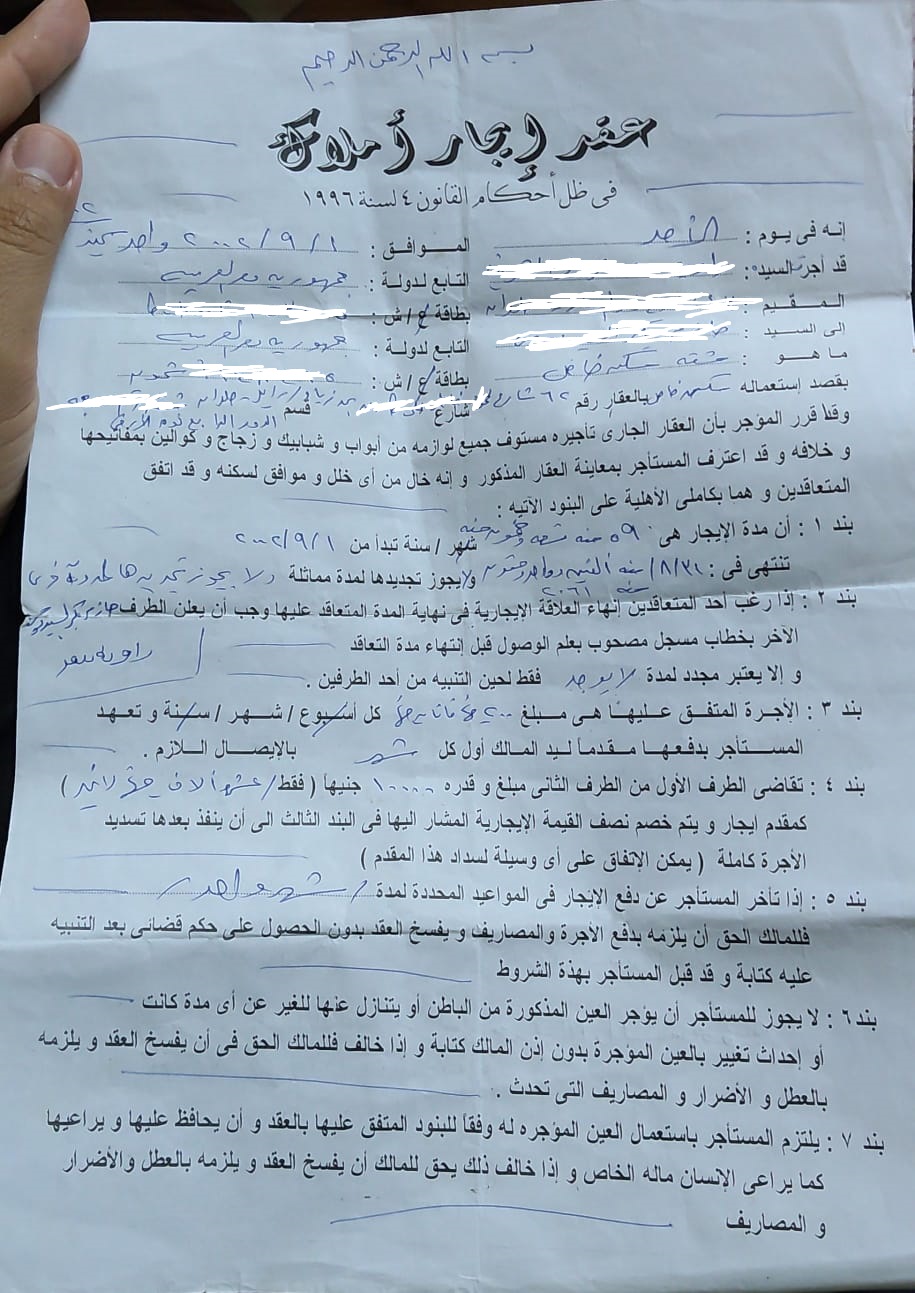 بسم الله الرحمن الرحيم
عقد إيجار أملاك
فى ظل أحكام القانون ٤ لسنة ١٩٩٦
إنه فى يوم : الأحد الموافق : ٢٠٠٢/٩/١
قد أجر السيد : التابع لدولة : جمهورية مصر العربية
المقيم : بطاقة ع / ش :
إلى السيد : التابع لدولة : جمهورية مصر العربية
ما هو : شقة سكن خاص بطاقة ع / ش :
بقصد إستعماله سكن خاص بالعقار رقم ٦٢ شارع
شارع قسم
وقد قرر المؤجر بأن العقار الجارى تأجيره مستوف جميع لوازمه من أبواب و شبابيك و زجاج و كوالين بمفاتيحها
و خلافه و قد اعترف المستأجر بمعاينة العقار المذكور و إنه خال من أى خلل و موافق لسكنه و قد اتفق
المتعاقدين و هما بكاملى الأهلية على البنود الآتيه :
بند ١ : أن مدة الإيجار هى ٥٩ سنة تسعة وخمسون سنة شهر / سنة تبدأ من ٢٠٠٢/٩/١
تنتهى فى : ٨/٣١/ سنة ٢٠٦١ ولا يجوز تجديدها لمدة مماثلة ولا يجوز تجديدها لمدة أخرى
بند ٢ : إذا رغب أحد المتعاقدين إنهاء العلاقة الإيجارية فى نهاية المدة المتعاقد عليها وجب أن يعلن الطرف
الآخر بخطاب مسجل مصحوب بعلم الوصول قبل إنتهاء مدة التعاقد
و إلا يعتبر مجدد لمدة لا يوجد فقط لحين التنبيه من أحد الطرفين .
بند ٣ : الأجرة المتفق عليها هى مبلغ ٢٠٠ كل أسبوع / شهر / سنة و تعهد
المستأجر بدفعها مقدماً ليد المالك أول كل شهر بالإيصال اللازم .
بند ٤ : تقاضى الطرف الأول من الطرف الثانى مبلغ و قدره ١٠٠٠٠ جنيهاً ( فقط / عشرة آلاف جنيه لا غير )
كمقدم ايجار و يتم خصم نصف القيمة الإيجارية المشار اليها فى البند الثالث الى أن ينفذ بعدها تسديد
الأجرة كاملة ( يمكن الإتفاق على أى وسيلة لسداد هذا المقدم )
بند ٥ : إذا تأخر المستأجر عن دفع الإيجار فى المواعيد المحددة لمدة / شهر واحد /
فللمالك الحق أن يلزمه بدفع الأجرة والمصاريف و يفسخ العقد بدون الحصول على حكم قضائى بعد التنبيه
عليه كتابة و قد قبل المستأجر بهذة الشروط
بند ٦ : لا يجوز للمستأجر أن يؤجر العين المذكورة من الباطن أو يتنازل عنها للغير عن أى مدة كانت
أو إحداث تغيير بالعين المؤجرة بدون إذن المالك كتابة و إذا خالف فللمالك الحق فى أن يفسخ العقد و يلزمه
بالعطل و الأضرار و المصاريف التى تحدث .
بند ٧ : يلتزم المستأجر باستعمال العين المؤجره له وفقاً للبنود المتفق عليها بالعقد و أن يحافظ عليها و يراعيها
كما يراعى الإنسان ماله الخاص و إذا خالف ذلك يحق للمالك أن يفسخ العقد و يلزمه بالعطل والأضرار
و المصاريف